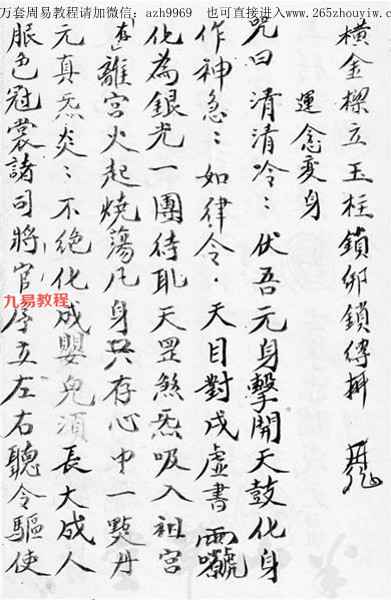 万套周易教程请加微信：azh9969 也可直接进入www.265zhouyiw.com
橫金樑立玉柱鎖卯鎖縛拆
運念变身
咒曰清清冷：伏吾元身擊開天鼓化身
作神急：如律令·天目對戌虚書
化為銀光一團待耴天罡煞炁吸入祖宫
存離宫火起燒蕩凡身只存心中一㸃丹
元真炁炎：不絶化成嬰兒湏長大成人
服色冠裳諸司將官序立左右聽令驅使
九易教程